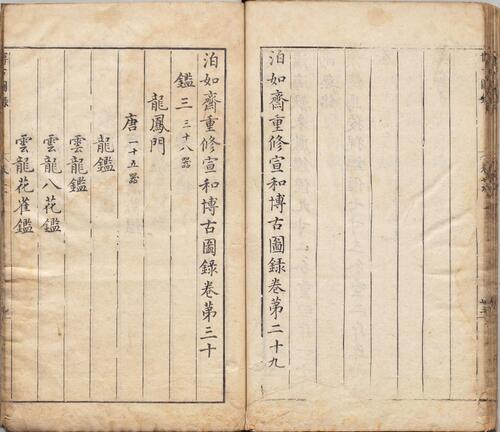 泊如齋重修宣和博古圖錄卷第二十九
泊如齋重修宣和博古圖錄卷第三十
鑑三 三十八器
龍鳳門
唐 一十五器
龍鑑
雲龍鑑
雲龍八花鑑
雲龍花雀鑑